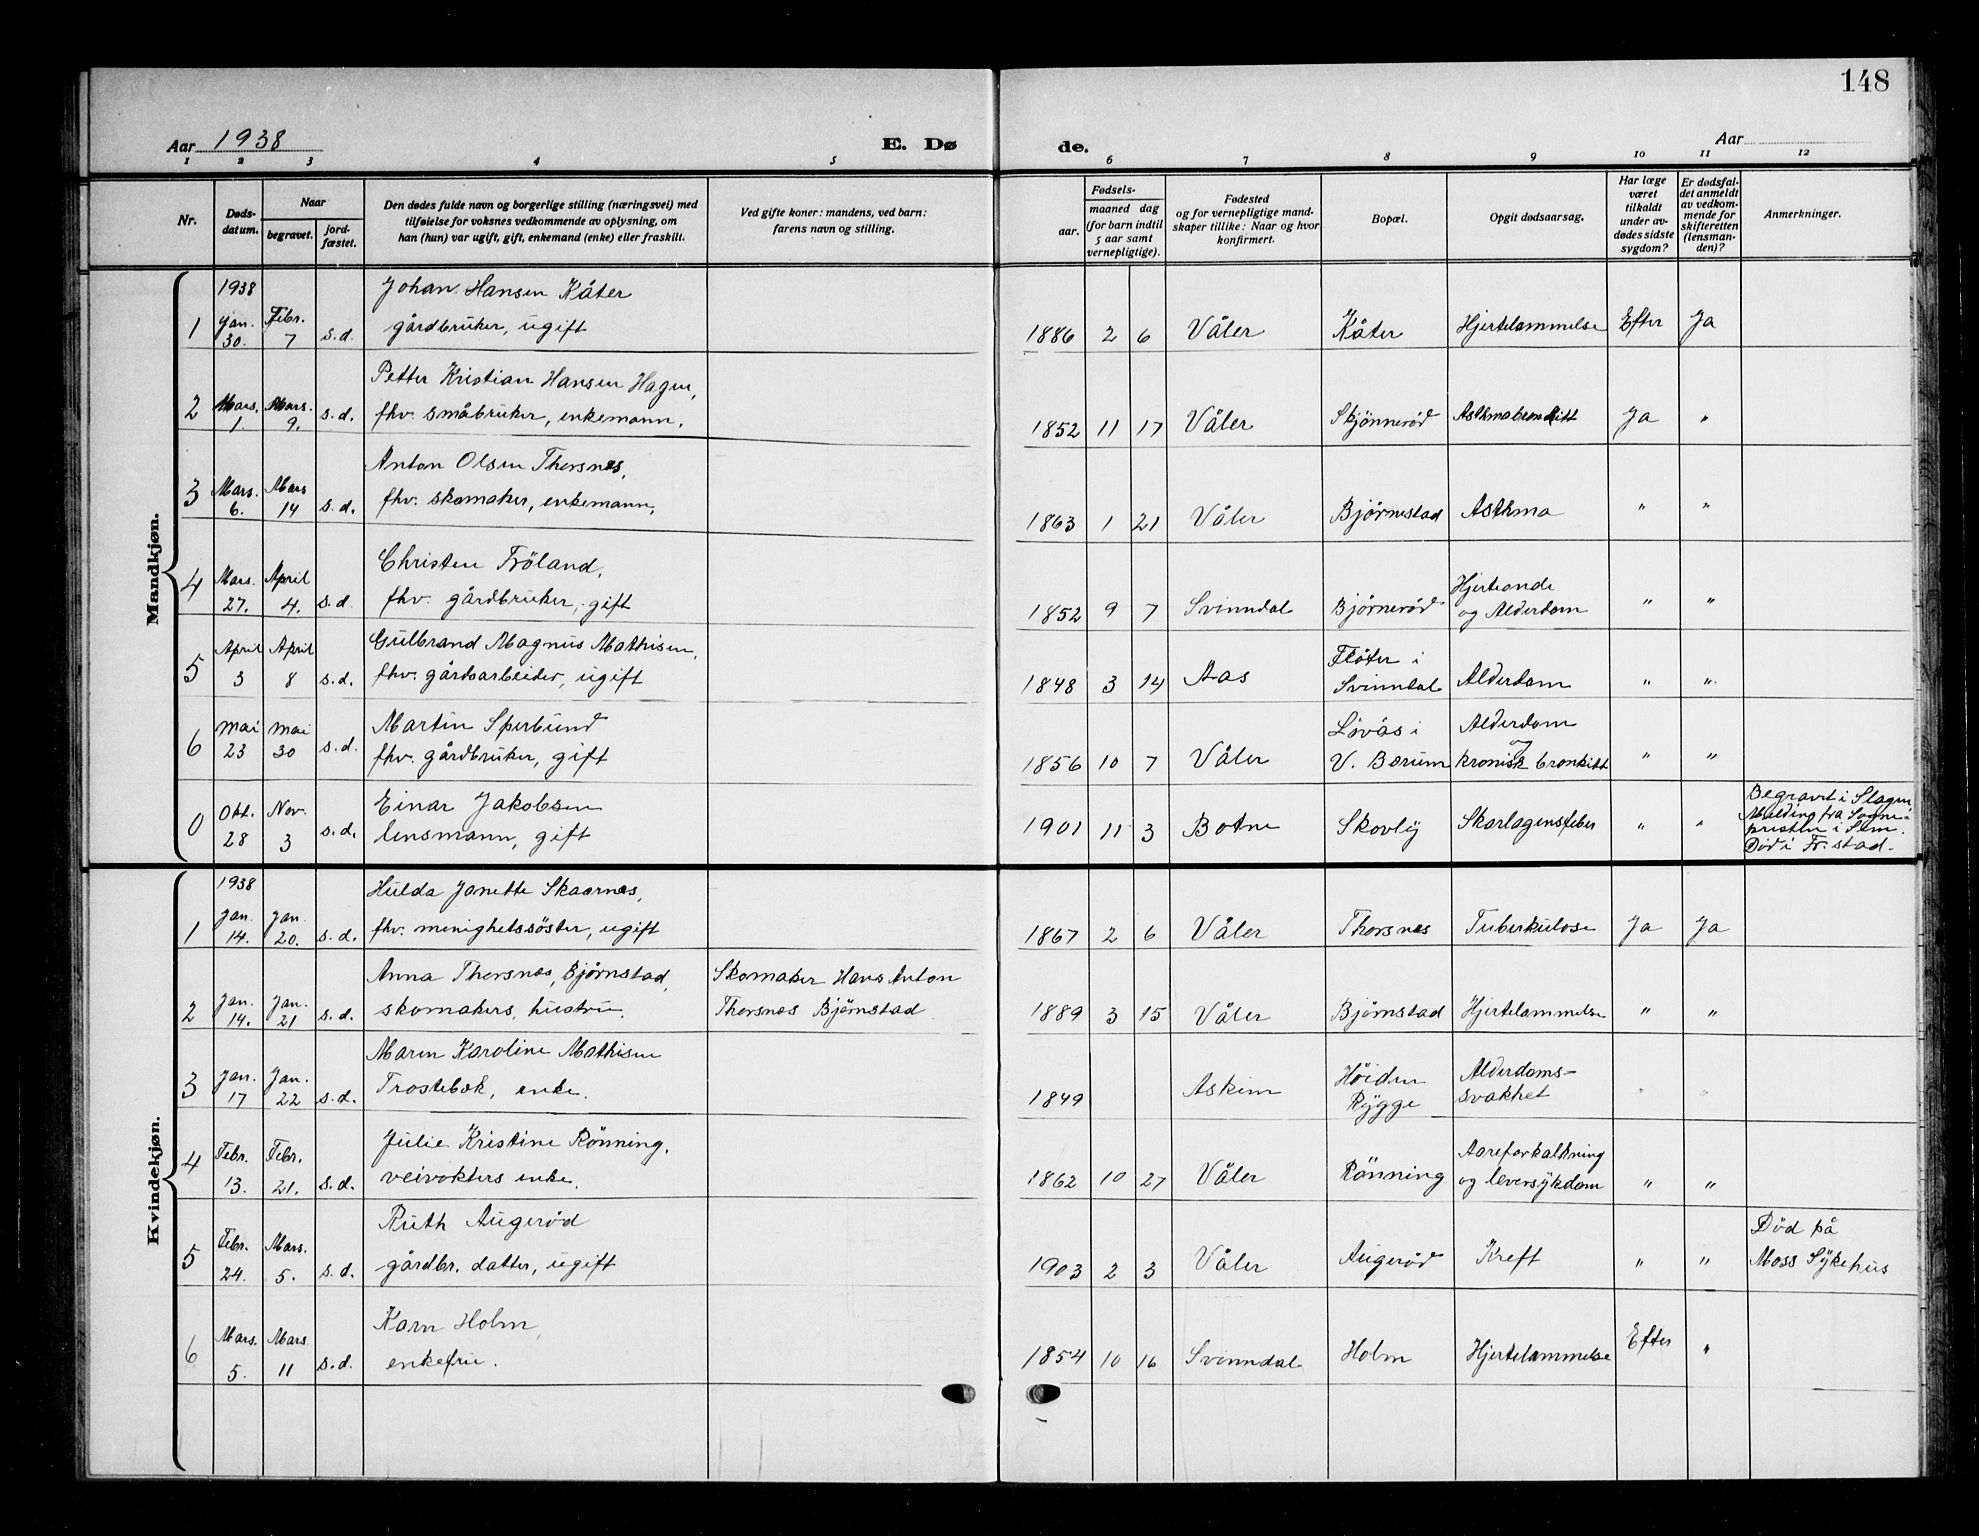 148
Aar 1938
E. Dø
de.
Aar
1 2 3 4 5 6 7 8 9 10 11 12
Nr.
Døds-
datum.
Naar
begravet.
jord-
fæstet.
Den dødes fulde navn og borgerlige stilling (næringsvei) med
tilføielse for voksnes vedkommende av oplysning, om
han (hun) var ugift, gift, enkemand (enke) eller fraskilt.
Ved gifte koner: mandens, ved barn:
farens navn og stilling.
Fødsels-
aar.
maaned dag
(for barn indtil
5 aar samt
vernepligtige).
Fødested
og for vernepligtige mand-
skaper tillike: Naar og hvor
konfirmert.
Bopæl.
Opgit dødsaarsag.
Har læge
været
tilkaldt
under av-
dødes sidste
sygdom?
Er dødsfal-
det anmeldt
av vedkom-
mende for
skifteretten
(lensman-
den)?
Anmerkninger.
Mandkjøn.
1938
Johan Hansen Kåter
1 Jan. 30. Febr. 7 s.d. gårdbruker, ugift 1886 2 6 Våler Kåter Hjertelammelse Efter Ja
Petter Kristian Hansen Hagen,
2 Mars. 1. Mars. 9. s.d. fhv. småbruker, enkemann. 1852 11 17 Våler Skjønnerød Asthmabronkitt Ja "
Anton Olsen Thorsnes,
3 Mars. 6. Mars 14 s.d. fhv. skomaker, enkemann. 1863 1 21 Våler Bjørnestad Asthma " "
Christen Tröland, Hjerteonde
4 Mars. 27. April 4. s.d. fhv. gårdbruker, gift 1852 9 7 Svinndal Bjørnerød og Alderdom " "
Gulbrand Magnus Mathisen, Fløter i
5 April 3 April 8 s.d. fhv. gårdsarbeider, ugift 1848 3 14 Aas Svinndal Alderdom " "
Martin Sperbund Lövås i Alderdom og
6 Mai 23 Mai 30 s.d. fhv. gårdbruker, gift 1856 10 7 Våler V. Bærum kronisk bronkitt " "
Einar Jakobsen
0 Okt. 28 Nov. 3 s.d. lensmann, gift 1901 11 3 Botne Skovly Skarlagensfeber " "
Begravet i Slagen
Melding fra Sogne-
presten i Sem.
Död i Fr.stad.
Kvindekjøn.
1938
Hulda Janette Skaarnes,
1 Jan. 14. Jan. 20. s.d. fhv. menighetssöster, ugift 1867 2 6 Våler Thorsnes Tuberkulose Ja Ja
Anna Thorsnes, Bjørnstad, Skomaker Hans Anton
2 Jan. 14. Jan. 21 s.d. skomakers, hustru. Thorsnes Bjørnstad 1889 3 15 Våler Bjørnstad Hjertelammelse " "
Maren Karoline Mathisen Höiden Alderdoms-
3 Jan. 17 Jan. 22 s.d. Trostebæk, enke. 1849 Askim Rygge svakhet " "
Julie Kristine Rönning, Aareforkalkning
4 Febr. 13. Febr. 21. s.d. veivokters enke. 1862 10 27 Våler Rönning og leversykdom " "
Ruth Augerød Död på
5 Febr. 24. Mars. 5. s.d. gårdbr. datter, ugift 1903 2 3 Våler Augerød Kreft " " Moss Sykehus
Karn Holm,
6 Mars. 5. Mars 11 s.d. enkefru. 1854 10 16 Svinndal Holm Hjertelammelse Efter "